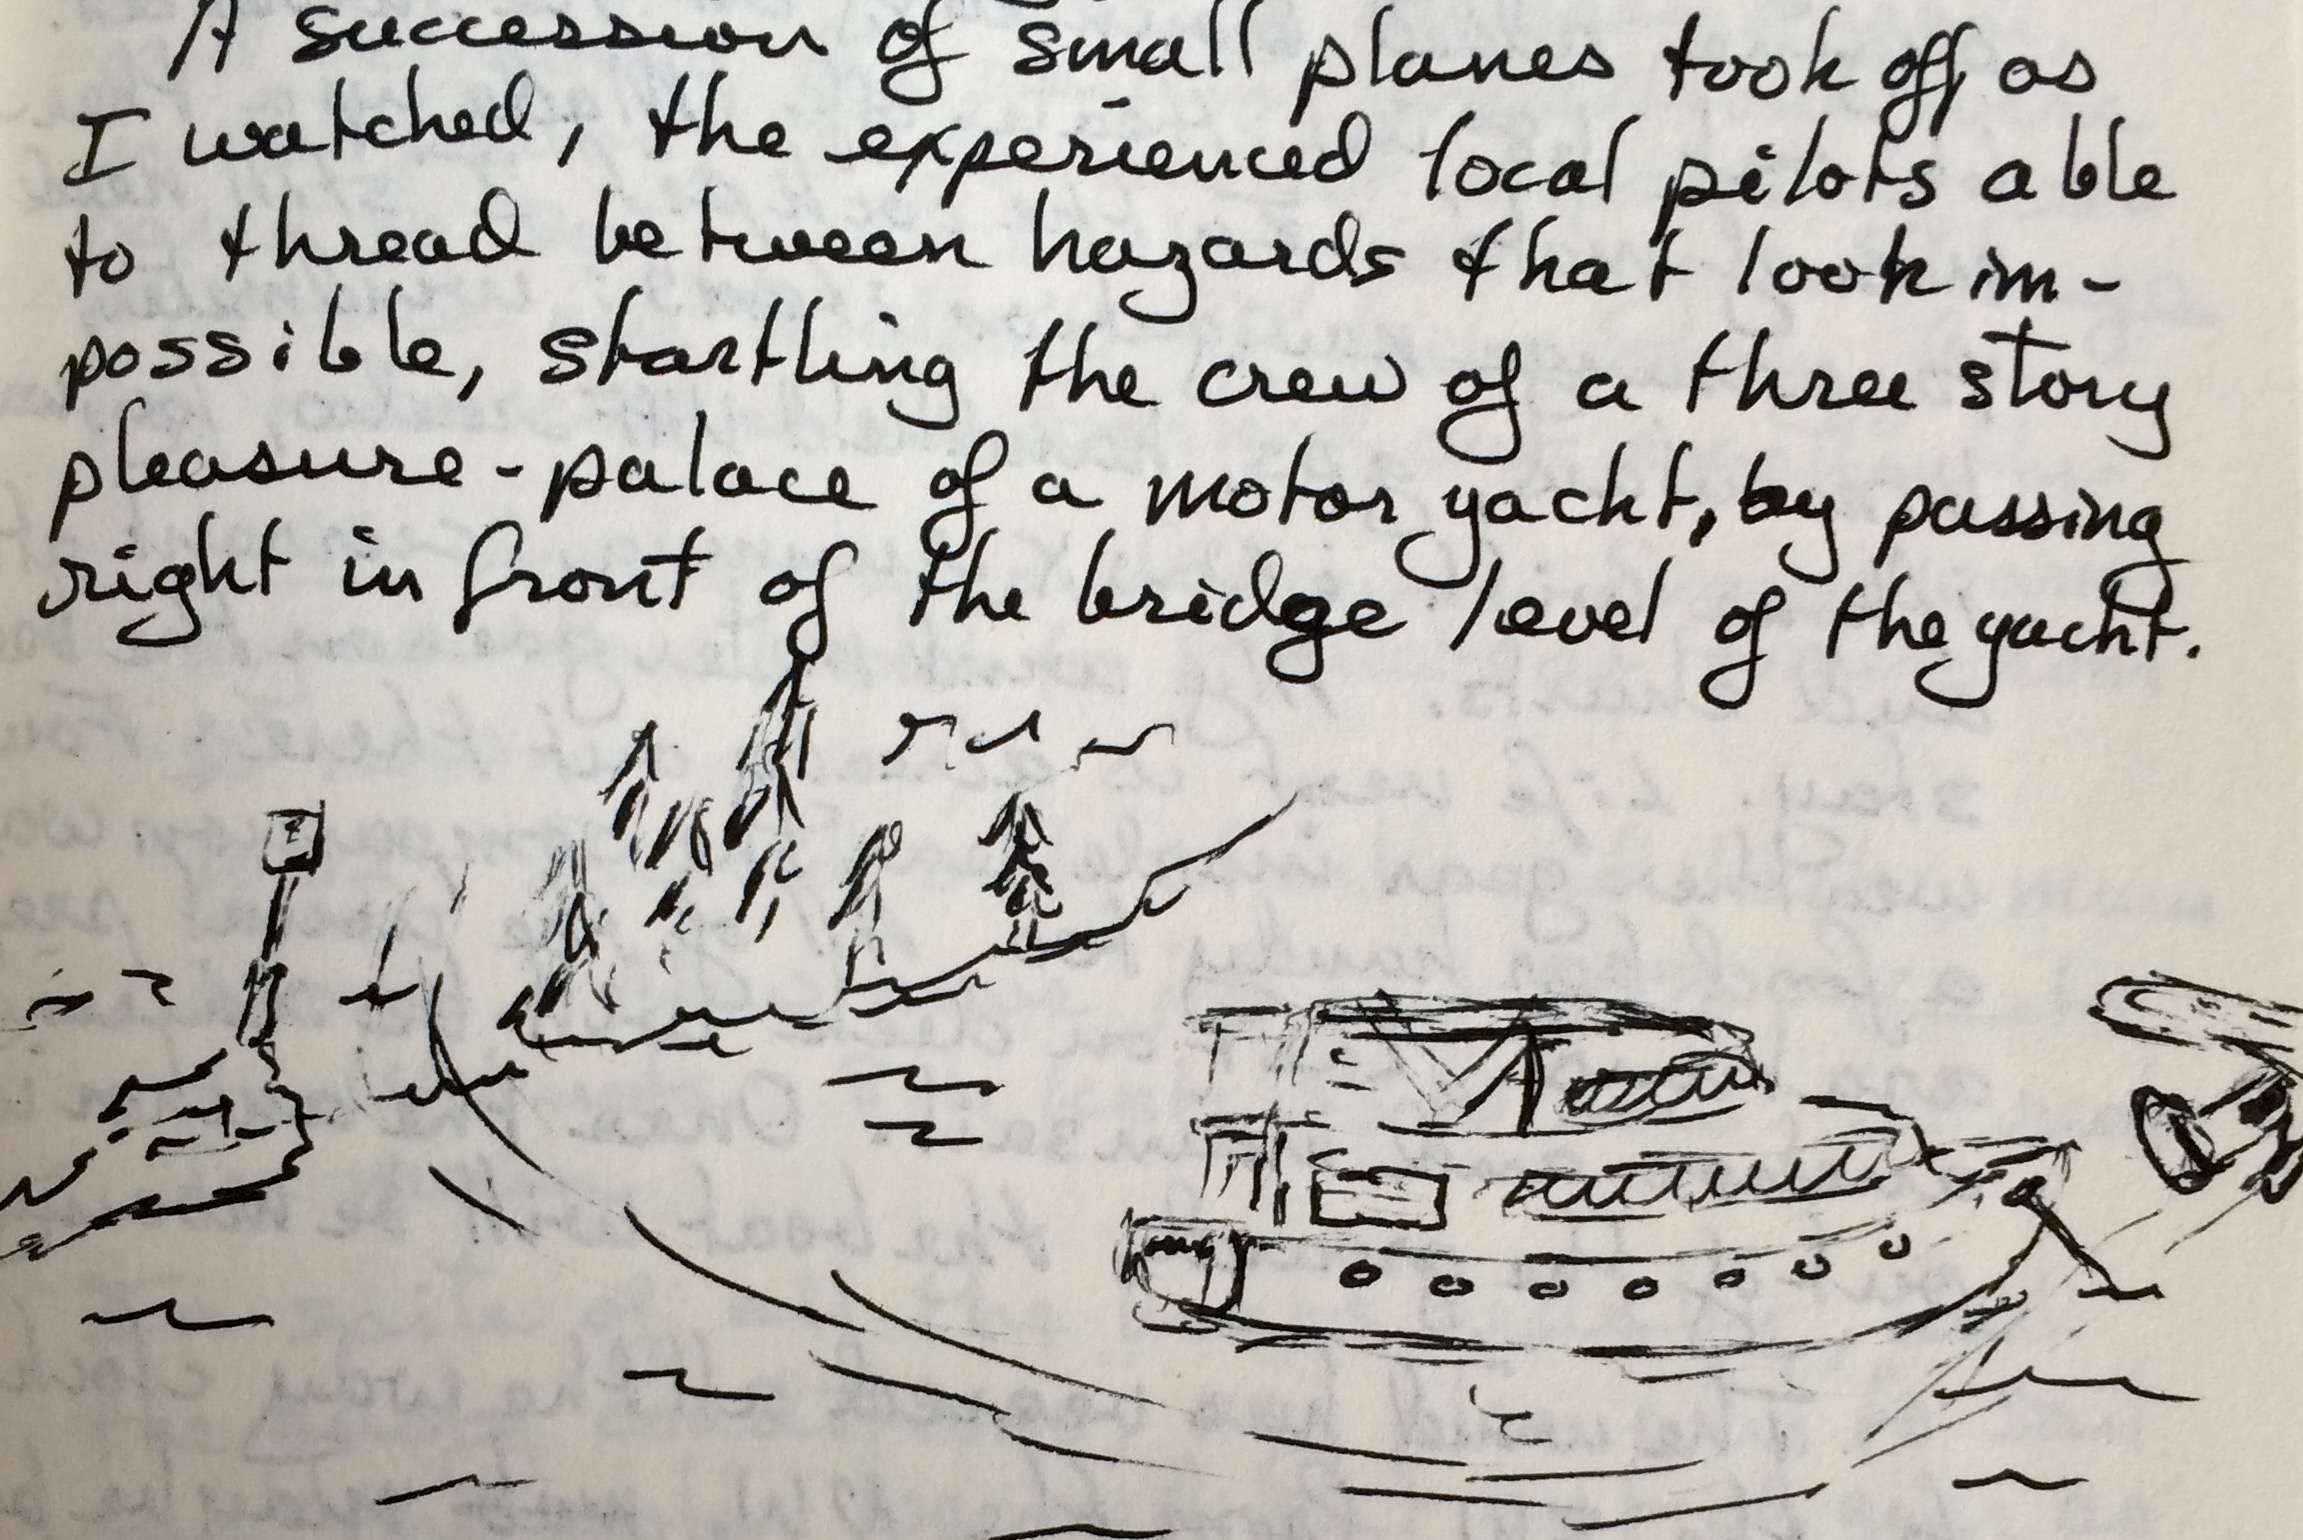 A succession of small planes took off as
I watched, the experienced local pilots able
to thread between hazards that look im-
possible, startling the crew of a three story
pleasure-palace of a motor yacht, by passing
right in front of the bridge level of the yacht.